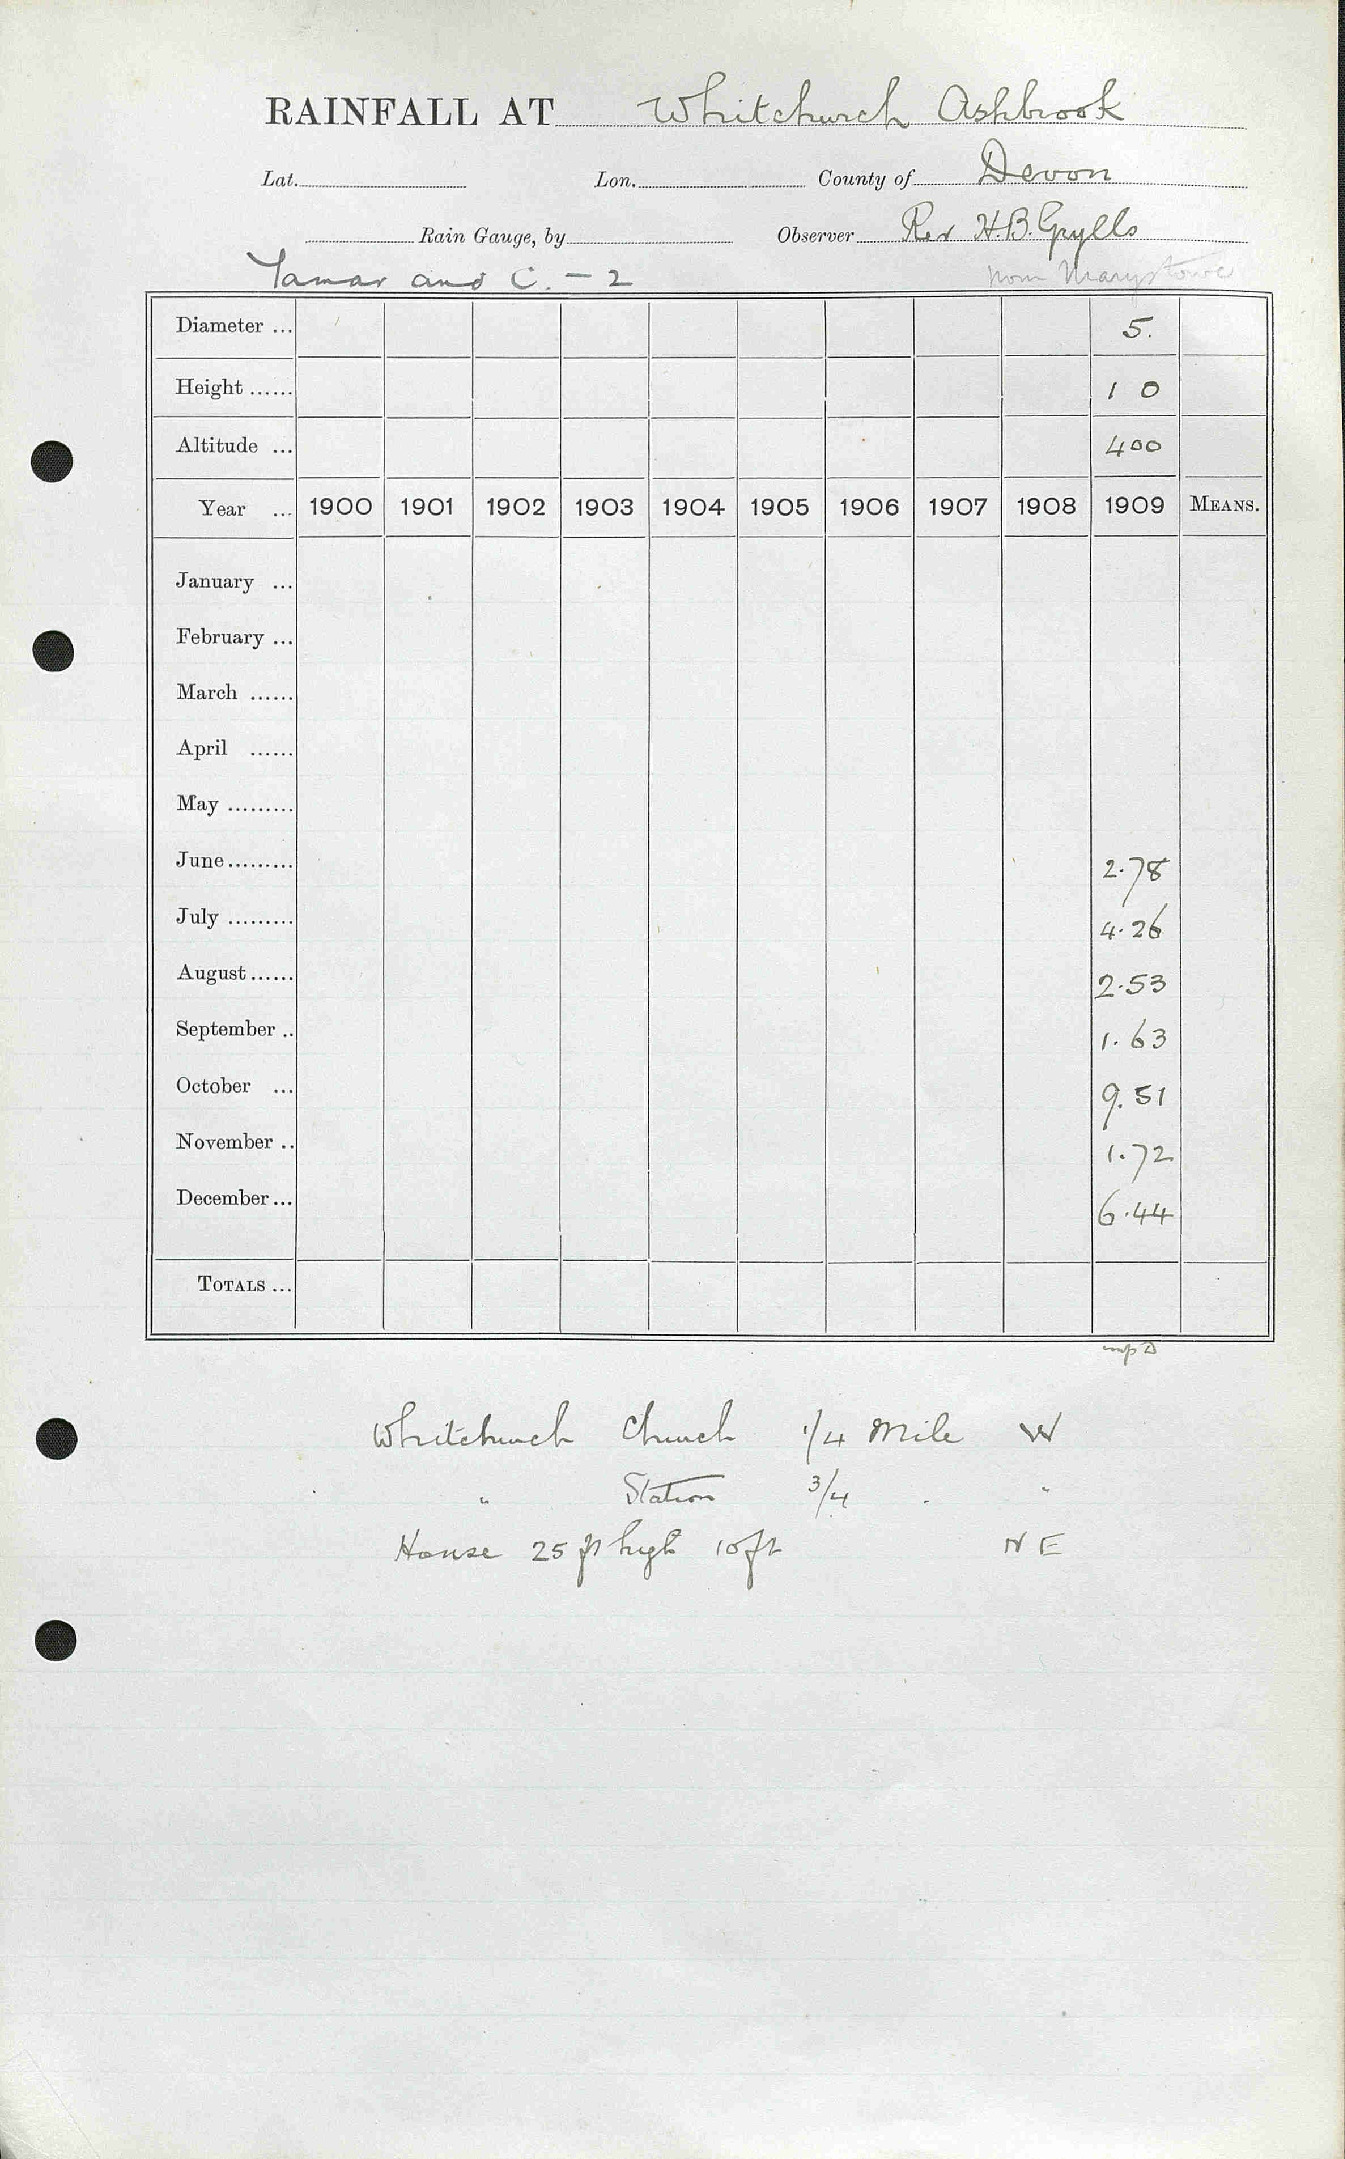 RAINFALL AT Whitchurch Ashbrook
Lat. Lon. County of Devon
Rain Gauge, by Observer Rev H.B. Grylls
Tamar and C. – 2 now Marystowe
Diameter ... 5.
Height ...... 1 0
Altitude ... 400
Year ... 1900 1901 1902 1903 1904 1905 1906 1907 1908 1909 MEANS.
January ...
February ...
March ......
April ......
May .........
June ......... 2.78
July ......... 4.26
August ...... 2.53
September .. 1.63
October ... 9.51
November .. 1.72
December ... 6.44
TOTALS ...
Whitchurch Church 1/4 Mile W
" Station 3/4 " "
House 25 ft high 10 ft N E